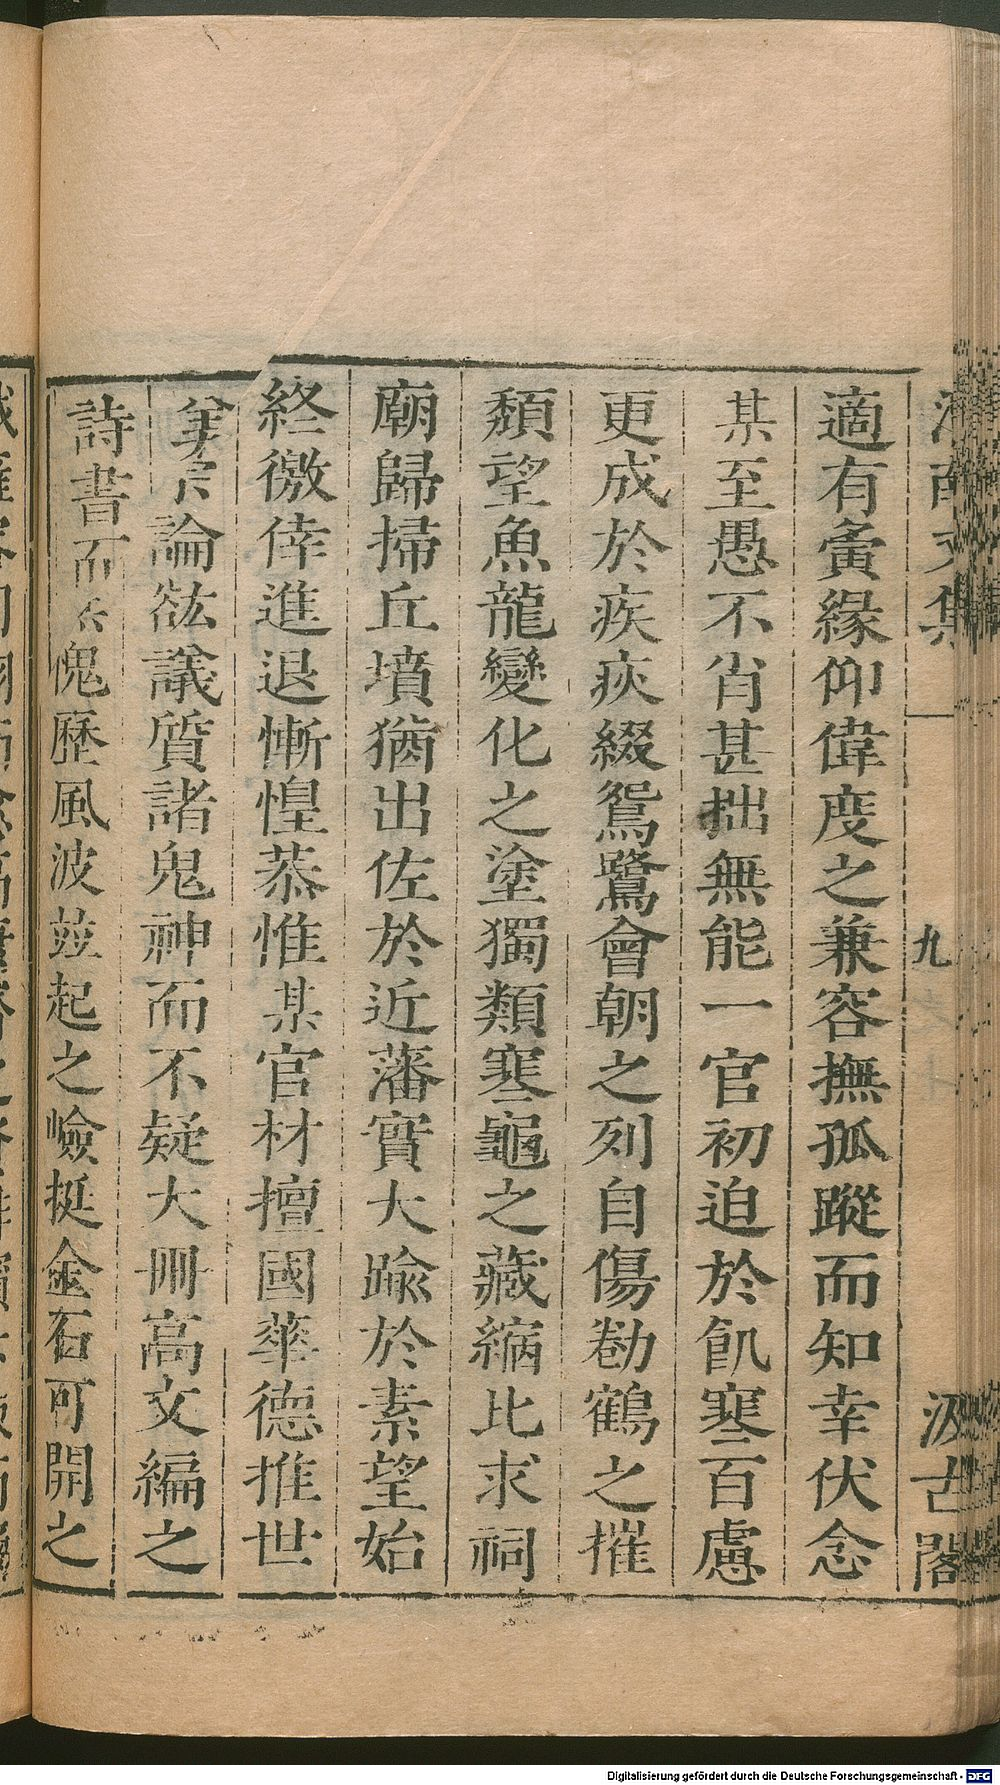 文集
九
汲古閣
適有夤緣仰偉度之兼容撫孤蹤而知幸伏念
某至愚不肖甚拙無能一官初迫於飢寒百慮
更成於疾疢綴鴛鷺會朝之列自傷勌鶴之摧
頹望魚龍變化之塗獨類寒龜之藏縮比求祠
廟歸掃丘墳猶出佐於近藩實大踰於素望始
終徼倖進退慚惶恭惟某官材擅國華德推世
美宗論紘議質諸鬼神而不疑大冊高文編之
詩書而愧歷風波竝起之嶮挺金石可開之
Digitalisierung gefördert durch die Deutsche Forschungsgemeinschaft - DFG